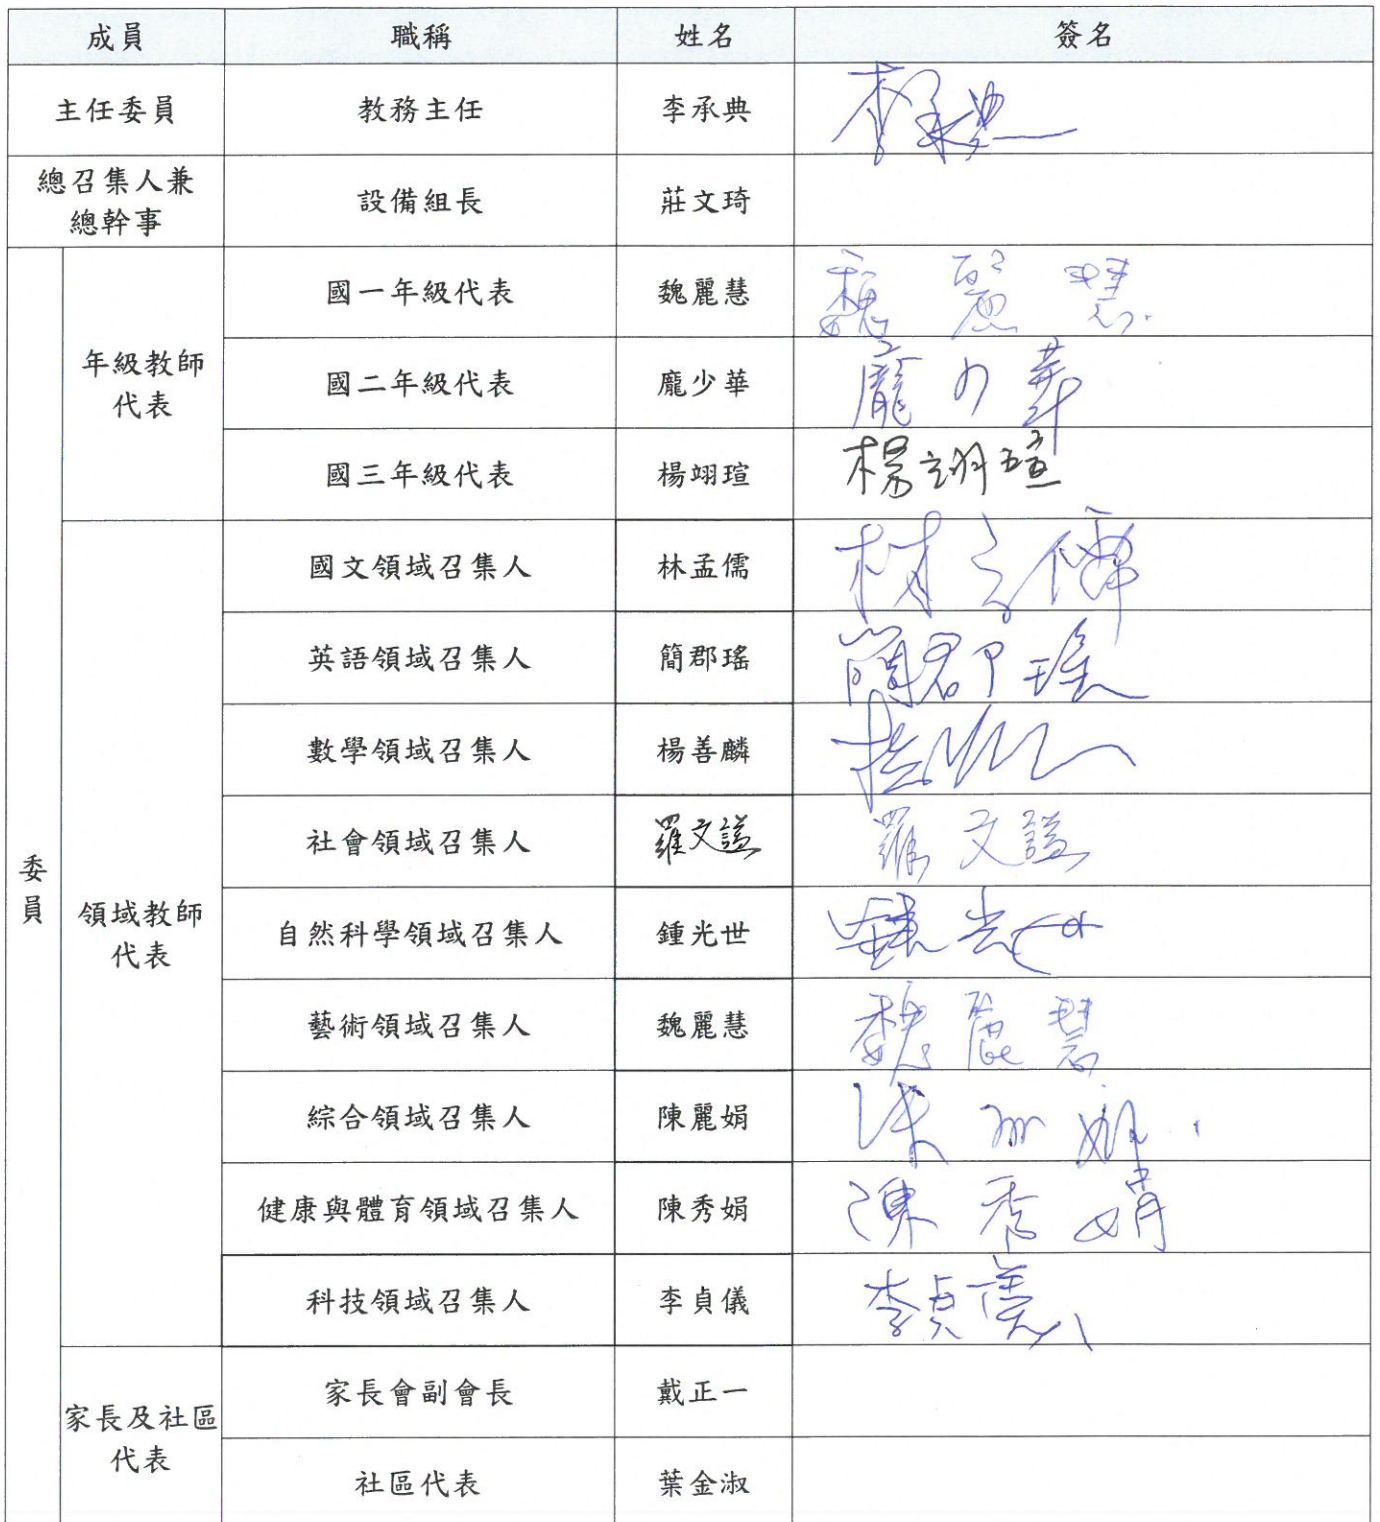 成員 職稱 姓名 簽名
主任委員 教務主任 李承典 李承典
總召集人兼
總幹事 設備組長 莊文琦
委員
年級教師
代表
國一年級代表 魏麗慧 魏麗慧
國二年級代表 龐少華 龐少華
國三年級代表 楊翊瑄 楊翊瑄
領域教師
代表
國文領域召集人 林孟儒 林孟儒
英語領域召集人 簡郡瑤 簡郡瑤
數學領域召集人 楊善麟
社會領域召集人 羅文謚 羅文謚
自然科學領域召集人 鍾光世 鍾光世
藝術領域召集人 魏麗慧 魏麗慧
綜合領域召集人 陳麗娟 陳麗娟
健康與體育領域召集人 陳秀娟 陳秀娟
科技領域召集人 李貞儀 李貞儀
家長及社區
代表
家長會副會長 戴正一
社區代表 葉金淑